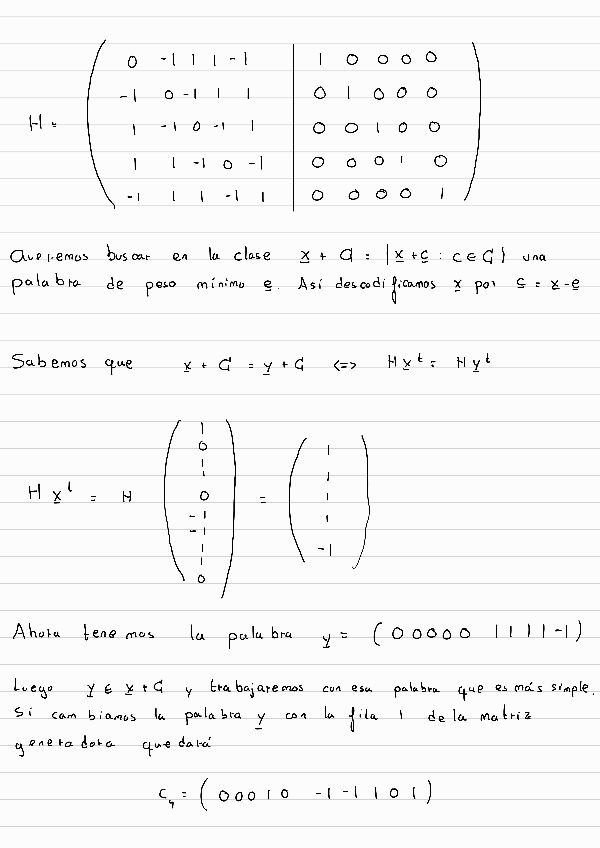 0 -1 1 1 -1 | 1 0 0 0 0
-1 0 -1 1 1 | 0 1 0 0 0
H = 1 -1 0 -1 1 | 0 0 1 0 0
1 1 -1 0 -1 | 0 0 0 1 0
-1 1 1 -1 1 | 0 0 0 0 1
Queremos buscar en la clase x + C = {x + c : c ∈ C} una
palabra de peso mínimo e. Así descodificamos x por c = x - e
Sabemos que x + C = y + C <=> H x^t = H y^t
H x^t = H ( 1 0 1 1 0 -1 -1 1 1 0 ) = ( 1 1 1 1 -1 )
Ahora tenemos la palabra y = ( 0 0 0 0 0 1 1 1 1 -1 )
Luego y ∈ x + C y trabajaremos con esa palabra que es más simple.
Si cambiamos la palabra y con la fila 1 de la matriz
generadora quedará
c_4 = ( 0 0 0 1 0 -1 -1 1 0 1 )